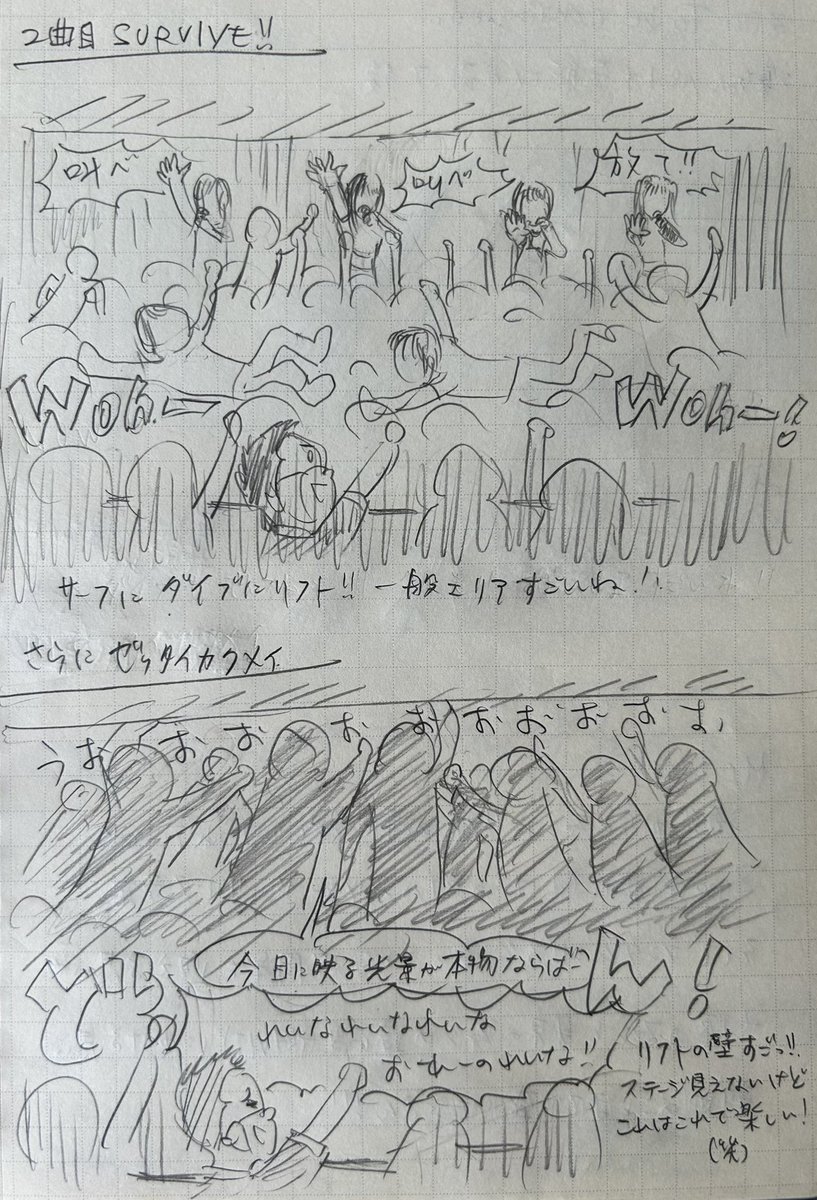 2曲目 SURVIVE!!
叫べ
叫べ
放て!!
Woh—
Woh—!
サーフに ダイブにリフト!! 一般エリアすごいね!!
さらに ゼッタイカクメイ
うおおおおおおおおおお
今目に映る光景が本物ならばー
ん!!
れいなれいなれいな
おれーのれいな!!
リフトの壁すごっ!!
ステージ見えないけど
これはこれで楽しい!
(笑)